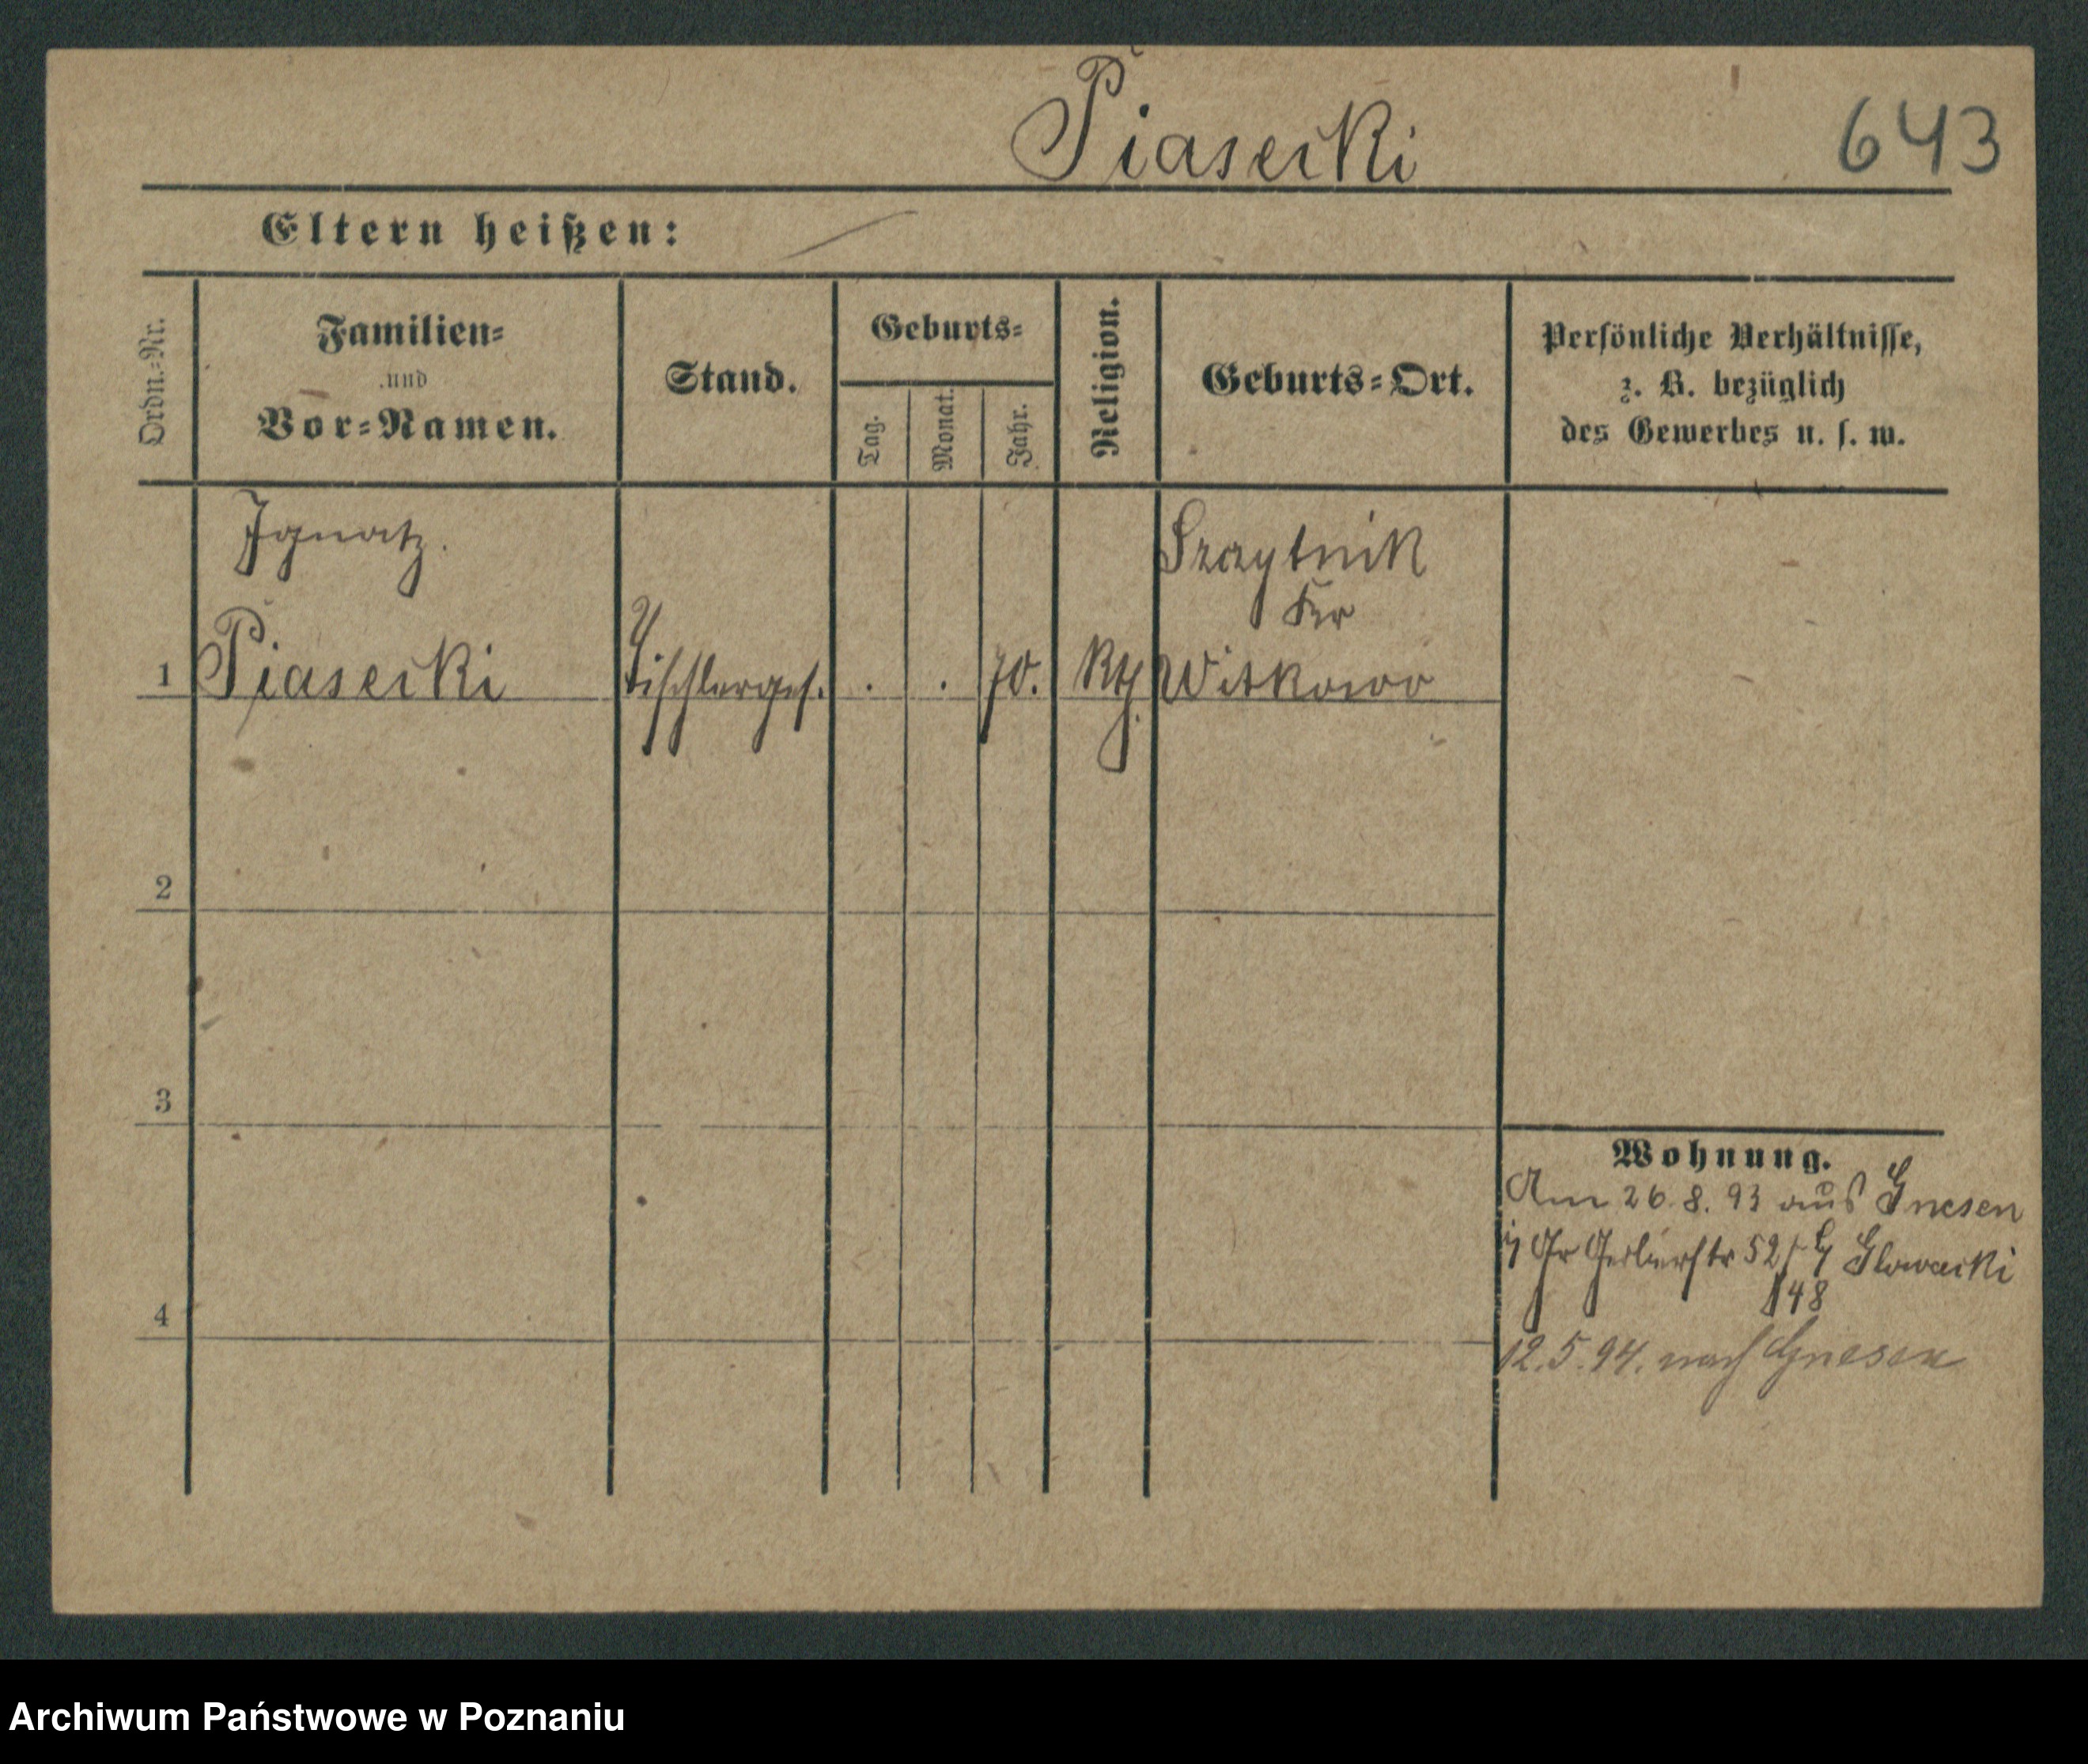 Piasecki
643
Eltern heißen:
Ordn.=Nr.
Familien=
und
Vor=Namen.
Stand.
Geburts=
Tag.
Monat.
Jahr.
Religion.
Geburts=Ort.
Persönliche Verhältnisse,
z. B. bezüglich
des Gewerbes u. s. w.
Ignatz.
Piasecki
Tischlerges.
. . 70.
Kth.
Szczytnik
Kr
Witkowo
1
2
3
4
Wohnung.
Am 26.8.93 aus Gnesen
Gr Gerberstr 52 Glowacki
48
12.5.94. nach Gnesen
Archiwum Państwowe w Poznaniu